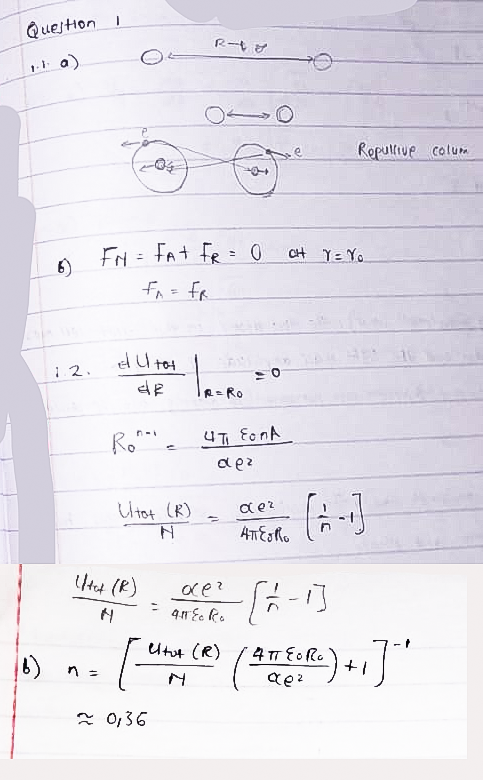 Question 1
1.1. a)
R→∞
e
e Repulsive colum
b) FN = FA + FR = 0 at r = r₀
FA = FR
1.2. dUtot/dR |R=R₀ = 0
R₀ⁿ⁻¹ = 4πε₀nA/αe²
Utot (R)/N = αe²/4πε₀R₀ [1/n - 1]
Utot (R)/N = αe²/4πε₀R₀ [1/n - 1]
b) n = [Utot (R)/N (4πε₀R₀/αe²) + 1]⁻¹
≈ 0,36